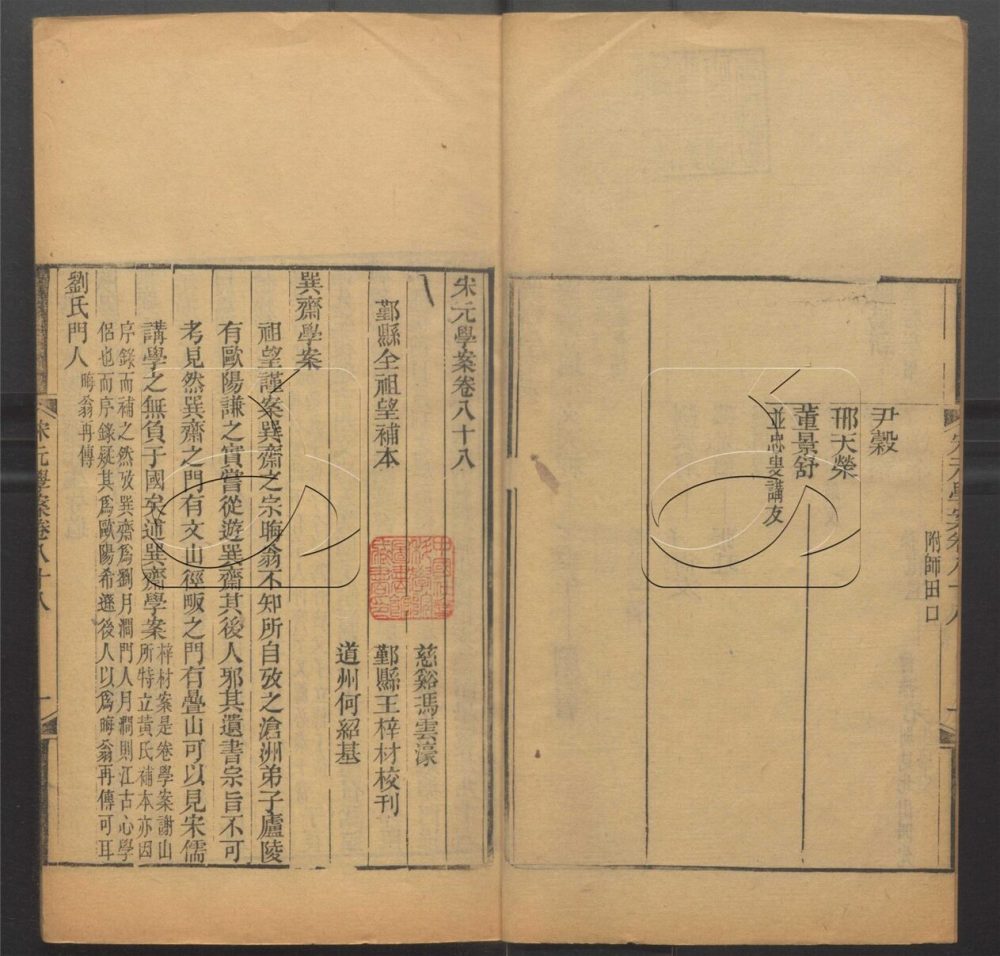 尹穀
附師田口
邢天榮
董景舒
並忠叟講友
宋元學案卷八十八
慈谿馮雲濠
鄞縣全祖望補本
鄞縣王梓材校刊
道州何紹基
巽齋學案
祖望謹案巽齋之宗晦翁不知所自攷之滄洲弟子廬陵
有歐陽謙之實嘗從遊巽齋其後人邪其遺書宗旨不可
考見然巽齋之門有文山徑畈之門有疊山可以見宋儒
講學之無負于國矣述巽齋學案
梓材案是卷學案謝山
所特立黃氏補本亦因
序錄而補之然攷巽齋爲劉月澗門人月澗則江古心學
侶也而序錄疑其爲歐陽希遜後人以爲晦翁再傳可耳
劉氏門人
晦翁再傳
宋元學案卷八十八
一